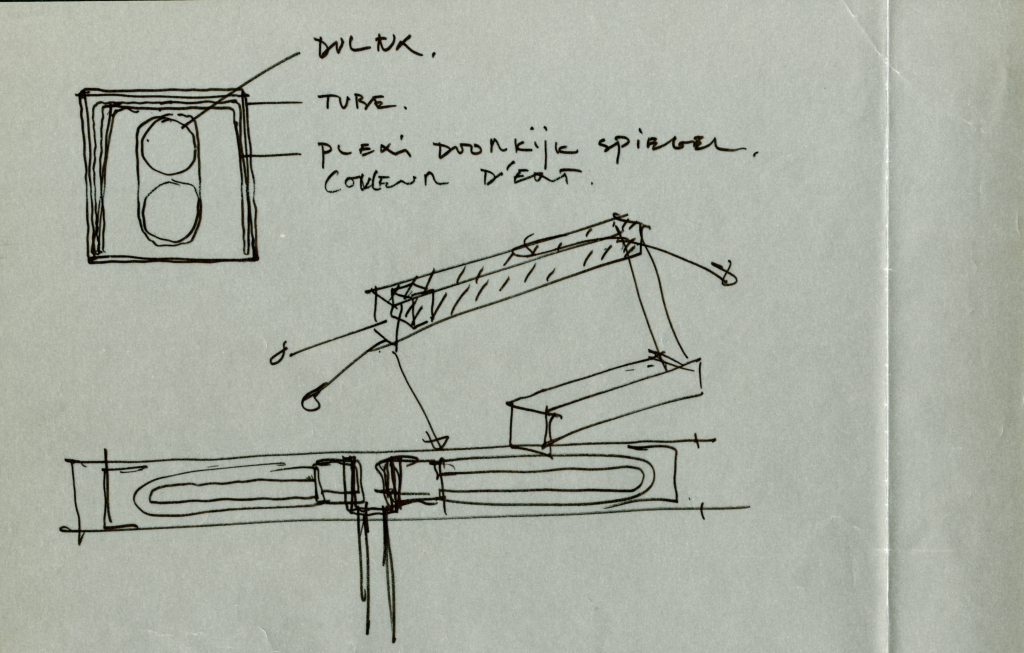 DULUX.
TUBE.
PLEXI DOORKIJK SPIEGEL.
COULEUR D'EAU.